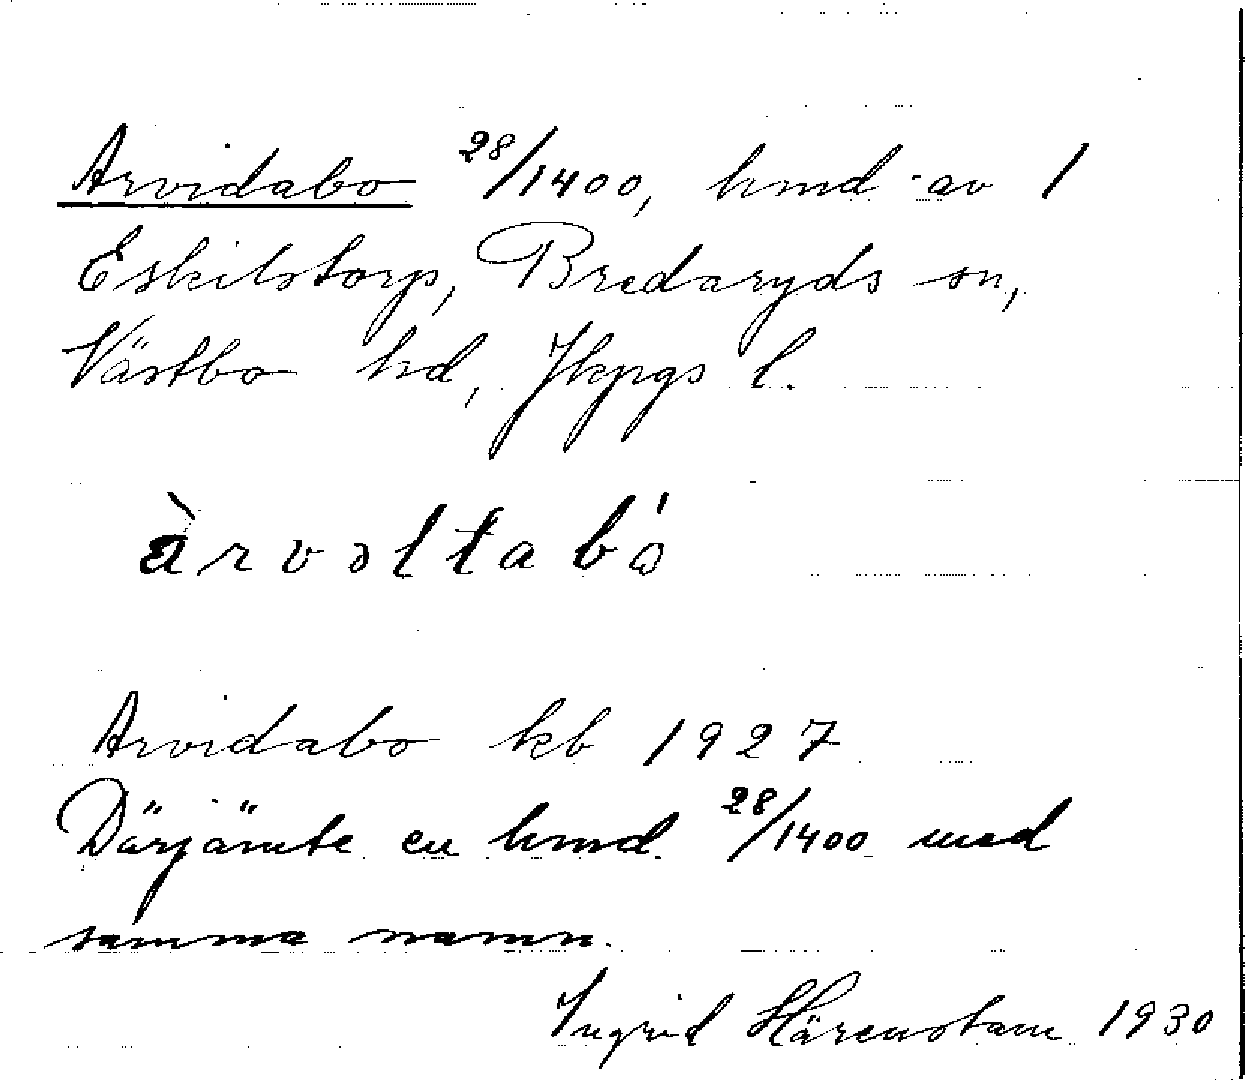 Arvidabo 28/1400, hmd av 1
Eskilstorp, Bredaryds sn,
Västbo hd, Jkpgs l.
àrvəltabó
Arvidabo kb 1927
Därjämte en hmd. 28/1400 med
samma namn.
Ingrid Härenstam 1930